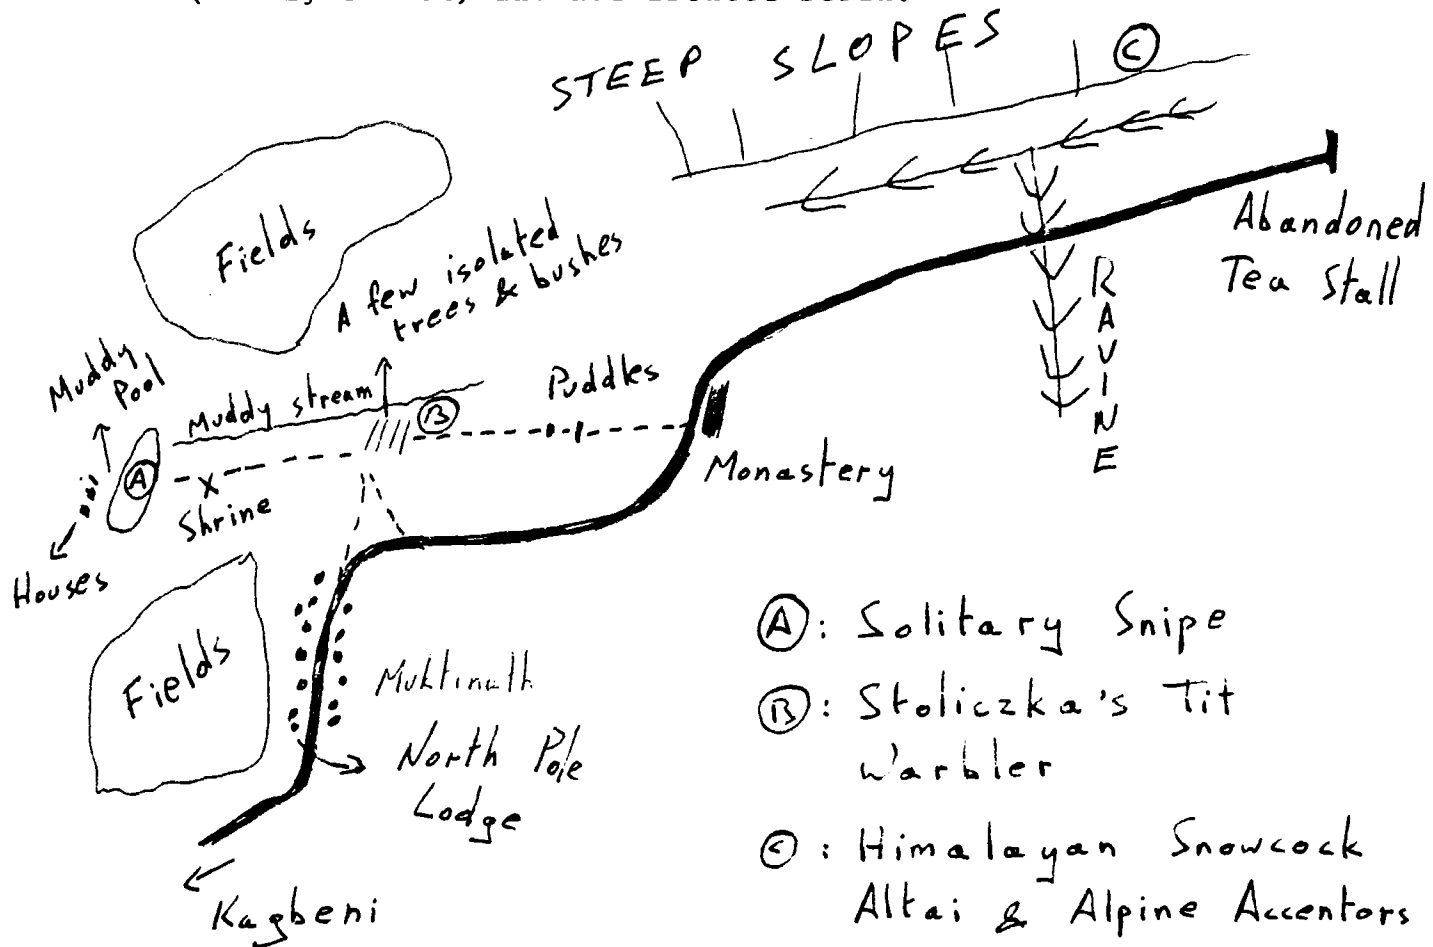 STEEP SLOPES
C
Fields
A few isolated
trees & bushes
Abandoned
Tea Stall
RAVINE
Muddy
Pool
Muddy stream
B
Puddles
A
Shrine
Monastery
Houses
Fields
Muktinath
North Pole
Lodge
Kagbeni
A : Solitary Snipe
B : Stoliczka's Tit
Warbler
C : Himalayan Snowcock
Altai & Alpine Accentors